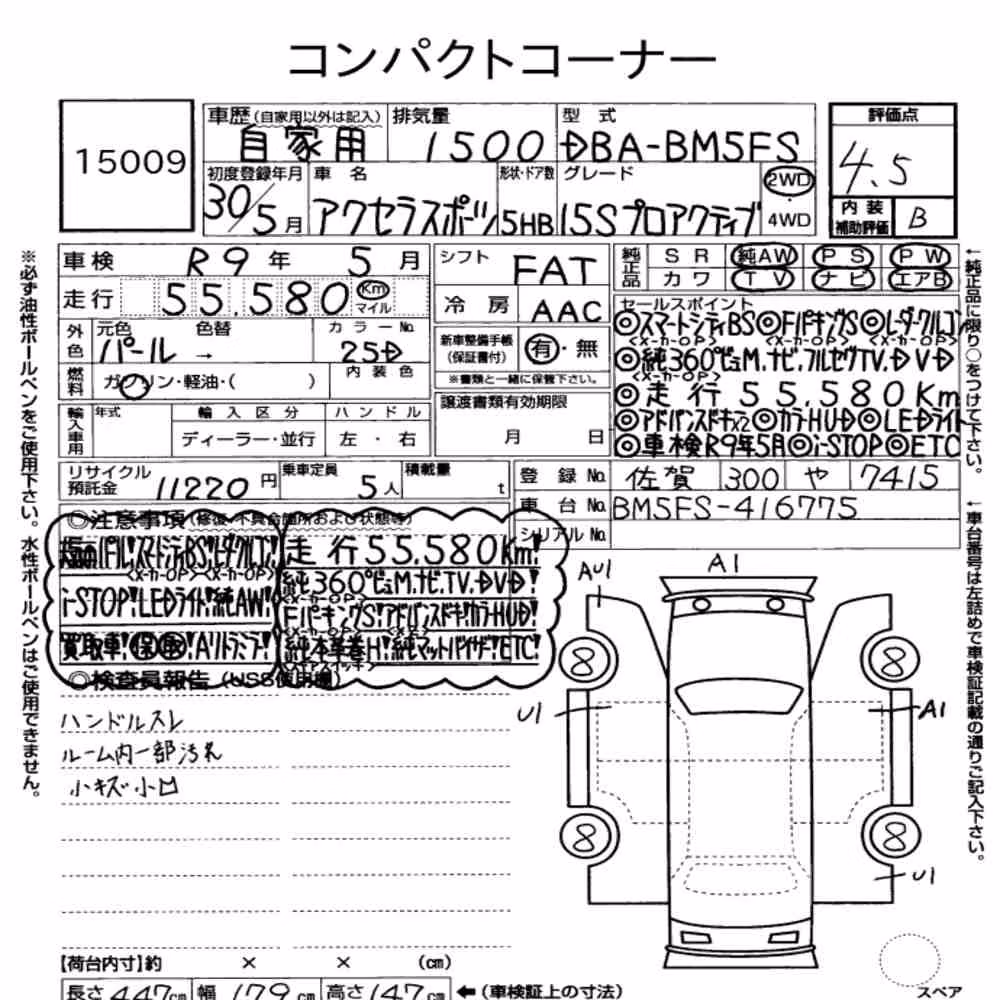 コンパクトコーナー
15009
車歴 (自家用以外は記入) 自家用
排気量 1500
型式 DBA-BM5FS
評価点 4.5
内装補助評価 B
初度登録年月 30/5月
車名 アクセラスポーツ
形状・ドア数 5HB
グレード 15Sプロアクティブ
2WD・4WD
車検 R9年 5月
シフト FAT
純正品 SR 純AW PS PW
カワ TV ナビ エアB
走行 55.580 Km マイル
冷房 AAC
セールスポイント
◎スマートシティBS◎FパーキングS◎レーダークルコン
<メーカーOP> <メーカーOP> <メーカーOP>
◎純360°ビューM.ナビ.フルセグTV.DVD
<メーカーOP>
◎走行55.580Km
◎アドバンスドキーx2◎カラーHUD◎LEDライト
◎車検R9年5月◎i-STOP◎ETC
外色 元色 パール → 色替
カラーNo. 25D
内装色
新車整備手帳(保証書付) 有・無
※書類と一緒に保管下さい。
燃料 ガソリン・軽油・( )
譲渡書類有効期限 月 日
輸入車用 年式 輸入区分 ハンドル
ディーラー・並行 左・右
リサイクル預託金 11220円
乗車定員 5人
積載量 t
登録No. 佐賀 300 や 7415
車台No. BM5FS-416775
シリアルNo.
◎注意事項(修復・不具合箇所および状態等)
パール!スマートシティBS!レーダークルコン!
<メーカーOP><メーカーOP>
i-STOP!LEDライト!純AW!
買取車!保取!Aルミテラ!
走行55.580Km!
純360°ビューM.ナビ.TV.DVD!
<メーカーOP>
FパーキングS!アドバンスドキー!カラーHUD!
<メーカーOP> <x2>
純本革巻H!純マットバイザー!ETC!
<ステアスイッチ>
◎検査員報告(USS使用欄)
ハンドルスレ
ルーム内一部汚れ
小キズ小凹
AU1
A1
8
8
U1
A1
8
8
U1
スペア
【荷台内寸】約 × × (cm)
長さ 447cm 幅 179cm 高さ 147cm ←(車検証上の寸法)
※必ず油性ボールペンをご使用下さい。水性ボールペンはご使用できません。
←純正品に限り○をつけて下さい。
←車台番号は左詰めで車検証記載の通りご記入下さい。